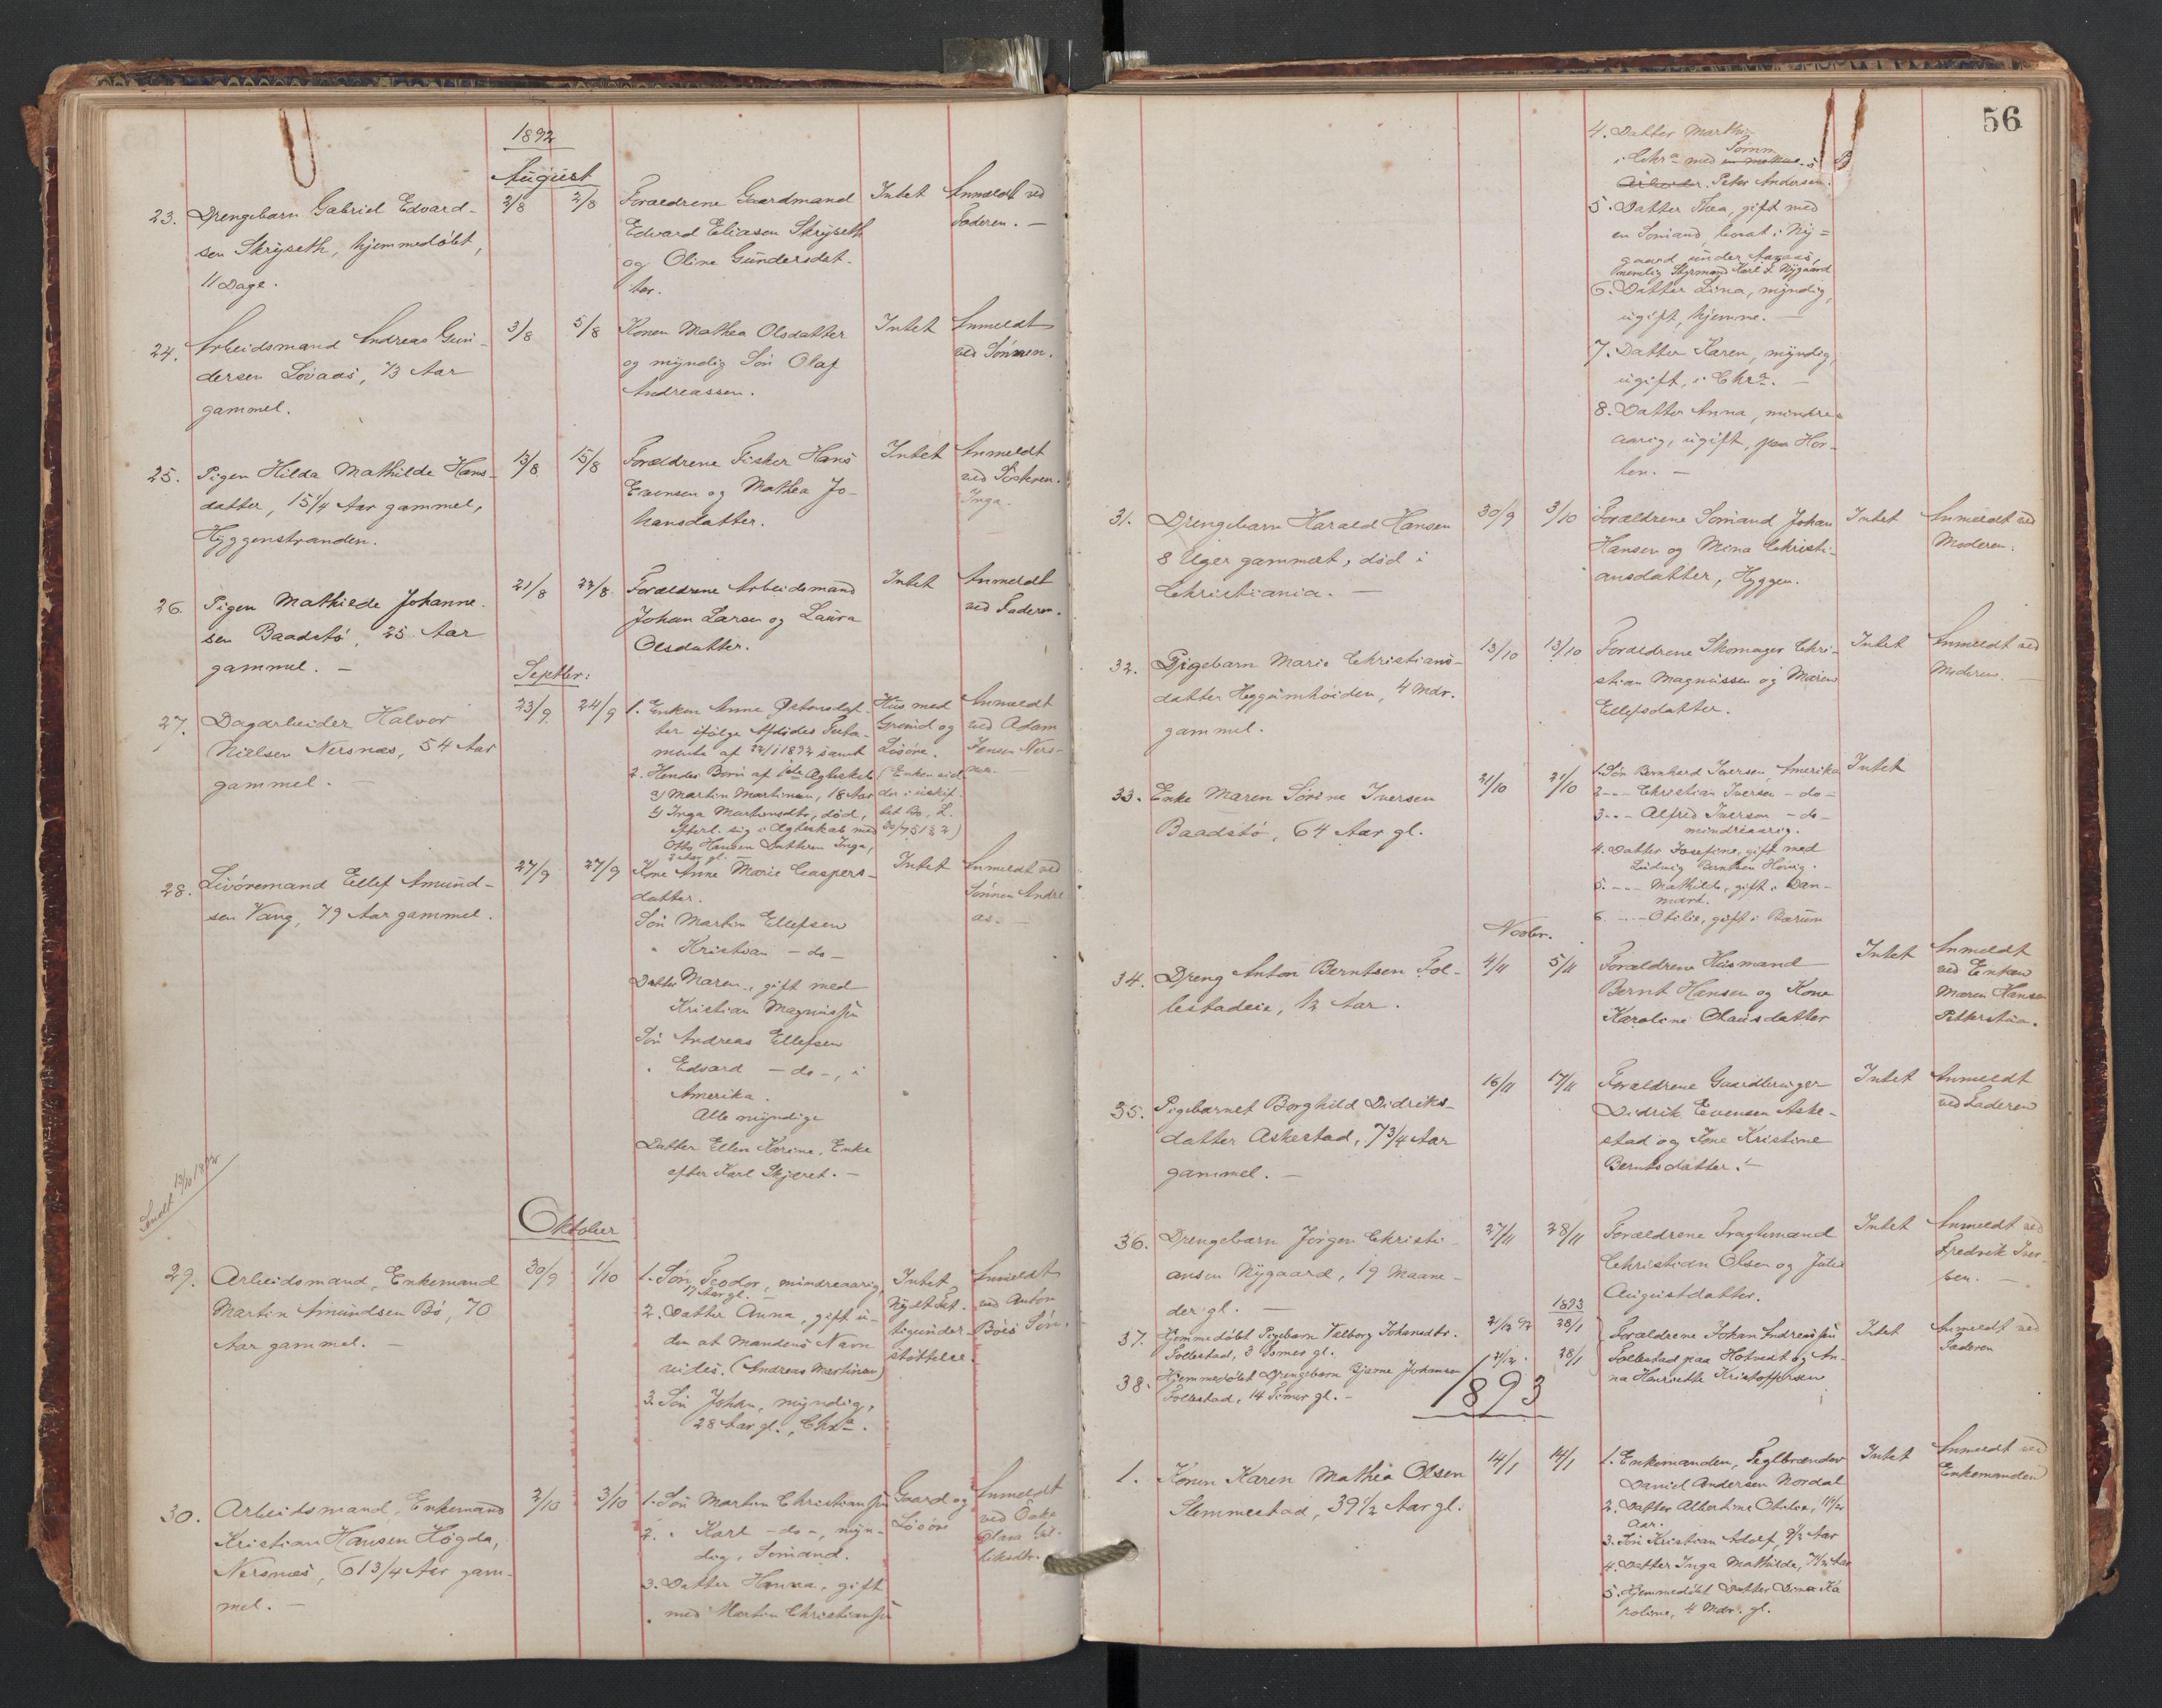 1892
August
23. Drengebarn Gabriel Edvard-
sen Skryseth, hjemmedøbt,
11 Dage.
2/8 2/8
Forældrene Gaardmand
Edvard Eliasen Skryseth
og Oline Gundersdat-
ter.
Intet
Anmeldt ved
Faderen. —
24. Arbeidsmand Andreas Gun-
dersen Lövaas, 73 Aar
gammel.
3/8 5/8
Konen Mathea Olsdatter
og myndig Sön Olaf
Andreassen.
Intet
Anmeldt
ved Sönnen.
25. Pigen Hilda Mathilde Hans-
datter, 15 1/4 Aar gammel,
Hyggenstranden.
13/8 15/8
Forældrene Fisker Hans
Evensen og Mathea Jo-
hansdatter.
Intet
Anmeldt
ved Söstren
Inga.
26. Pigen Mathilde Johanne-
sen Baadstö, 25 Aar
gammel. —
21/8 22/8
Forældrene Arbeidsmand
Johan Larsen og Laura
Olsdatter.
Intet
Anmeldt
ved Faderen.
Septbr:
27. Dagarbeider Halvor
Nielsen Nersnæs, 54 Aar
gammel. —
23/9 24/9
1. Enken Anne Østensdat-
ter ifölge Afdödes Testa-
mente af 22/1 1892 samt
2. Hendes Börn af 1ste Ægteskab
a) Martin Martinsen, 18 Aar
b) Inga Martinsdtr, död,
efterl. sig i Ægteskab med
Otto Hansen Datteren Inga,
3 Aar gl. —
Hus med
Grund og
Lösöre.
(Enken sid-
der i uskif-
tet Bo, L.
30/7 51 § 2)
Anmeldt
ved Adam
Jensen Ners-
næs. —
28. Livöremand Ellef Amund-
sen Vang, 79 Aar gammel.
27/9 27/9
Kone Anne Marie Caspers-
datter.
Sön Martin Ellefsen
" Kristian — do —
Datter Maren, gift med
Kristian Magnussen
Sön Andreas Ellefsen
" Edvard — do —, i
Amerika.
Alle myndige
Datter Ellen Karine, Enke
efter Karl Skjeret. —
Intet
Anmeldt ved
Sönnen Andre-
as. —
Sendt 13/10 1892
Oktober
29. Arbeidsmand, Enkemand
Martin Amundsen Bö, 70
Aar gammel. —
30/9 1/10
1. Sön Teodor, mindreaarig,
17 Aar gl. —
2. Datter Anna, gift u-
den at Mandens Navn
vides. (Andreas Martinsen)
3. Sön Johan, myndig,
28 Aar gl., Chra.
Intet
Nydt Fat-
tigunder-
støttelse.
Anmeldt
ved Anton
Böes Sön.
30. Arbeidsmand, Enkemand
Kristian Hansen Högda,
Nersnæs, 61 3/4 Aar gam-
mel. —
2/10 3/10
1. Sön Martin Christiansen
2. " Karl — do —, myn-
dig, Sömand.
3. Datter Hanna, gift
med Martin Christiansen
Gaard og
Lösöre
Anmeldt
ved Enke
56
4. Datter Marthe
i Chra med
Sömm.
Arbeider. Peter Andersen.
5. Datter Thea, gift med
en Sömand, borat i Ny-
gaard under Aaraas,
nemlig Styrmand Karl J. Nygaard
6. Datter Lina, myndig,
ugift, hjemme. —
7. Datter Karen, myndig,
ugift, i Chra. —
8. Datter Anna, mindre-
aarig, ugift, paa Hor-
ten. —
31. Drengebarn Harald Hansen
8 Uger gammelt, död i
Christiania. —
30/9 3/10
Forældrene Sömand Johan
Hansen og Mina Christi-
ansdatter, Hyggen.
Intet
Anmeldt ved
Moderen.
32. Pigebarn Marie Christians-
datter Heggumhöiden, 4 Mdr.
gammel.
13/10 13/10
Forældrene Skomager Chri-
stian Magnussen og Maren
Ellefsdatter.
Intet
Anmeldt ved
Moderen. —
33. Enke Maren Sörine Iversen
Baadstö, 64 Aar gl.
21/10 21/10
1. Sön Bernhard Iversen, Amerika
2. — Christian Iversen — do —
3. — Alfred Iversen — do —
mindreaarig.
4. Datter Josefine, gift med
Ludvig Berntsen Hövig.
5. — Mathilde, gift i Dan-
mark.
6. — Otilie, gift i Bærum
Intet
Novbr.
34. Dreng Anton Berntsen Fol-
lestadeie, 1/2 Aar.
4/11 5/11
Forældrene Husmand
Bernt Hansen og Kone
Karoline Olausdatter
Intet
Anmeldt
ved Enken
Maren Hansen
Petterstua.
35. Pigebarnet Borghild Didriks-
datter Askestad, 7 3/4 Aar
gammel. —
16/11 17/11
Forældrene Gaardbruger
Didrik Evensen Aske-
stad og Kone Kristine
Berntsdatter. —
Intet
Anmeldt
ved Faderen
36. Drengebarn Jörgen Christi-
ansen Nygaard, 19 Maane-
der gl. —
27/11 28/11
Forældrene Fragtemand
Christian Olsen og Julie
Augustdatter.
Intet
Anmeldt ved
Fredrik Iver-
sen. —
1893
37. Hjemmedöbt Pigebarn Valborg Johansdtr.
Follestad, 3 Timer gl.
2/12 92 28/1
38. Hjemmedöbt Drengebarn Bjarne Johansen
Follestad, 14 Timer gl. —
2/12 28/1
Forældrene Johan Andreassen
Follestad paa Hotvedt og An-
na Henriette Kristoffersen
Intet
Anmeldt ved
Faderen
1893
1. Konen Karen Mathea Olsen
Slemmestad, 39 1/2 Aar gl.
14/1 14/1
1. Enkemanden, Teglbrænder
Daniel Andersen Nordal
2. Datter Albertine Otilie, 11 1/2
Aar.
3. Sön Kristian Adolf, 9 1/2 Aar
4. Datter Inga Mathilde, 7 1/2 Aar
5. Hjemmedöbt Datter Dina Ka-
roline, 4 Mdr. gl.
Intet
Anmeldt ved
Enkemanden